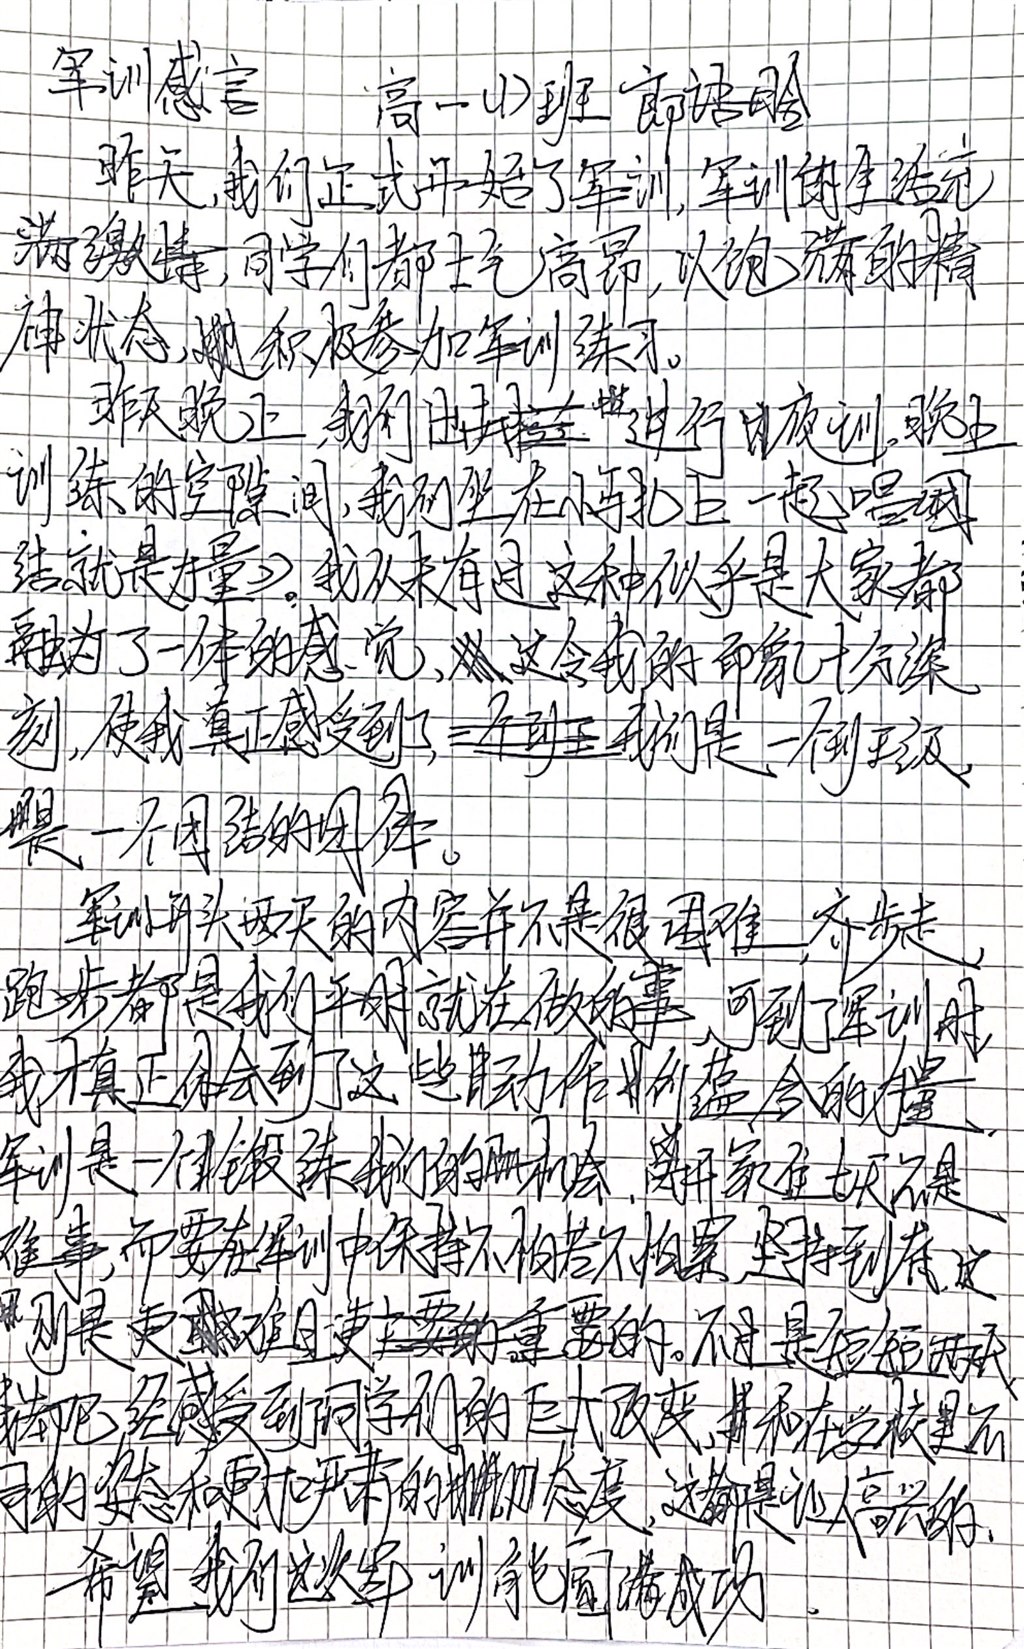 军训感言 高一(1)班 郎语晗
昨天,我们正式开始了军训,军训的生活充
满激情,同学们都士气高昂,以饱满的精
神状态,积极参加军训练习。
昨天晚上,我们进行夜训,晚上
训练的空隙间,我们坐在小马扎上一起唱团
结就是力量》。我从未有过这种似乎是大家都
融为了一体的感觉,这令我的印象十分深
刻,使我真正感受到了,我们是一个班级,
是一个团结的团体。
军训开头两天的内容并不是很困难,齐步走、
跑步都是我们平时就在做的事,可到了军训时,
我才真正体会到了这些动作所蕴含的力量,
军训是一个锻练我们的机会,离开家庭七天不是
难事,而要在军训中保持不怕苦不怕累,坚持到底,这
则是更难且更重要的。不过是短短两天,
我却已经感受到同学们的巨大改变,和在学校里不
同的姿态和更加严肃的态度,这都是让人高兴的,
希望我们这次军训能圆满成功.